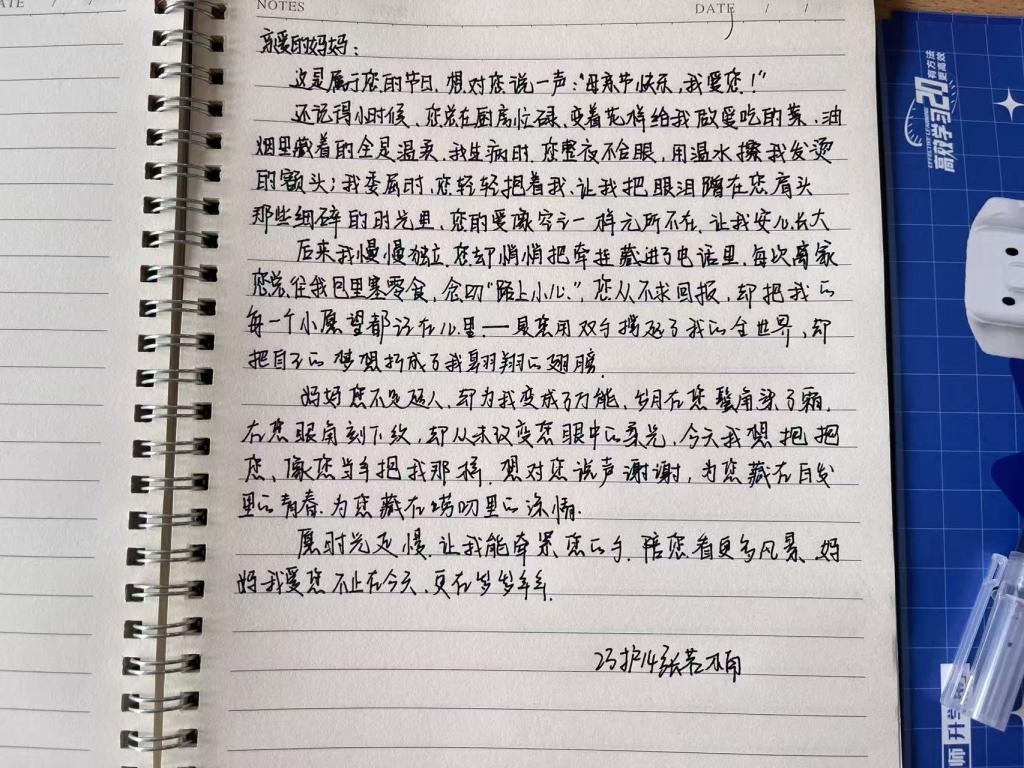 ATE / /
NOTES
DATE / /
亲爱的妈妈：
这是属于您的节日，想对您说一声：“母亲节快乐，我爱您！”
还记得小时候，您总在厨房忙碌，变着花样给我做爱吃的菜，油
烟里藏着的全是温柔，我生病时，您整夜不合眼，用温水擦我发烫
的额头；我委屈时，您轻轻抱着我，让我把眼泪蹭在您肩头
那些细碎的时光里，您的爱像空气一样无所不在，让我安心长大
后来我慢慢独立，您却悄悄把牵挂藏进了电话里，每次离家
您总往我包里塞零食，念叨“路上小心”，您从不求回报，却把我的
每一个小愿望都记在心里——是您用双手撑起了我的全世界，却
把自己的梦想折成了我翱翔的翅膀。
妈妈您不是超人，却为我变成了万能，岁月在您鬓角染了霜，
在您眼角刻下纹，却从未改变您眼中的柔光，今天我想抱抱
您、像您当年抱我那样，想对您说声谢谢，为您藏在白发
里的青春，为您藏在唠叨里的深情。
愿时光走慢，让我能牵紧您的手，陪您看更多风景，妈
妈我爱您不止在今天，更在岁岁年年。
23护14张若
高效学习20
有方法
更高效
师 升学